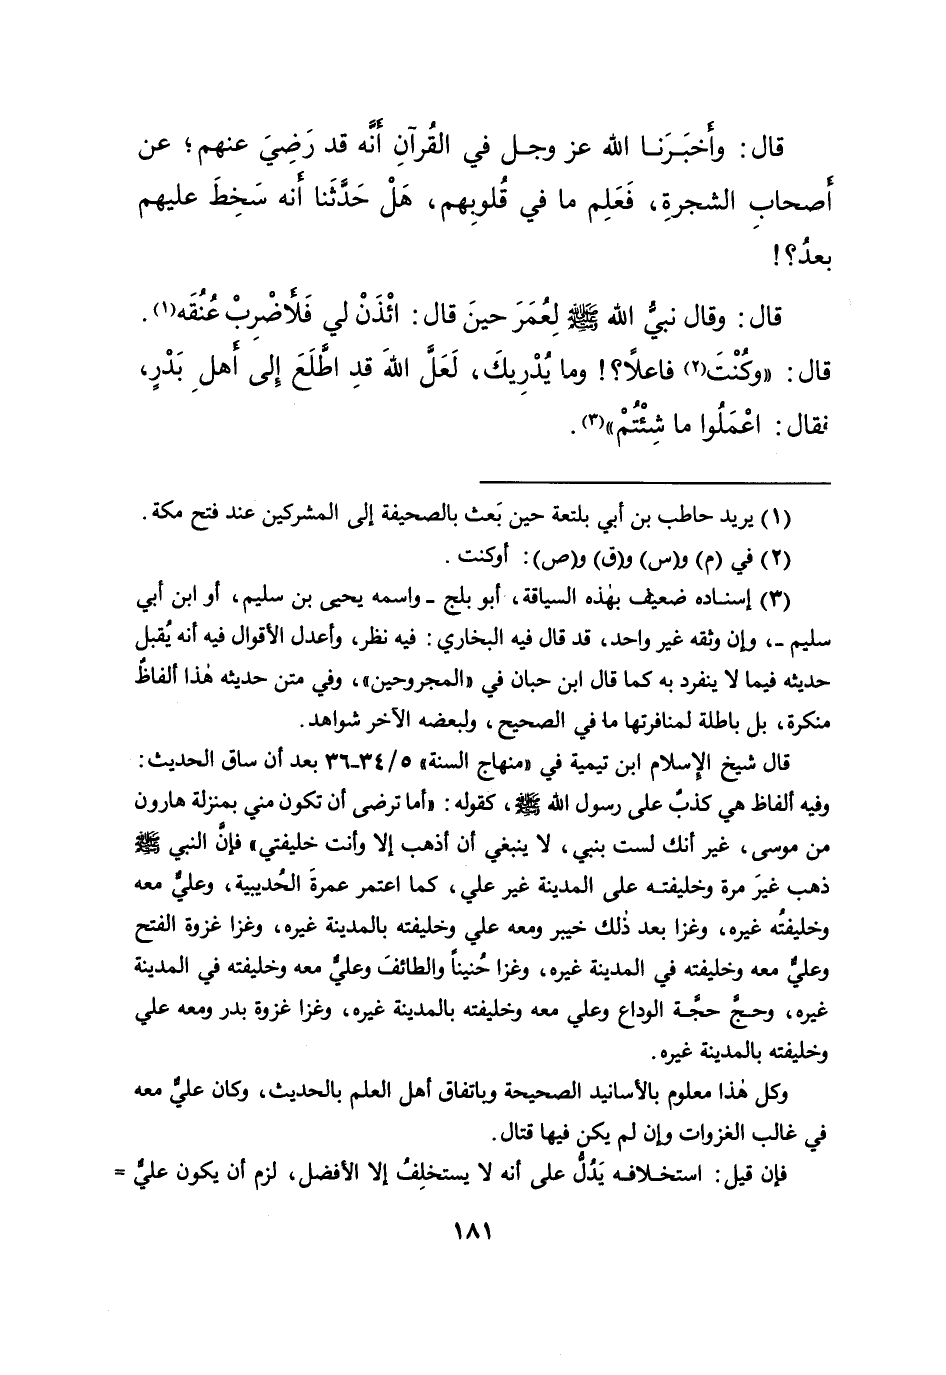 قال: وأَخبَرَنا الله عز وجل في القُرآنِ أَنَّه قد رَضِيَ عنهم؛ عن
أَصحابِ الشجرةِ، فَعَلِم ما في قُلوبِهم، هَلْ حَدَّثَنا أنه سَخِطَ عليهم
بعدُ؟!
قال: وقال نبيُّ الله ﷺ لِعُمَرَ حينَ قال: ائْذَنْ لي فَلأَضْرِبْ عُنُقَه(١).
قال: «وكُنْتَ(٢) فاعلاً؟! وما يُدْرِيكَ، لَعَلَّ اللهَ قدِ اطَّلَعَ إلى أَهلِ بَدْرٍ،
فقال: اعْمَلُوا ما شِئْتُمْ»(٣).
(١) يريد حاطب بن أبي بلتعة حين بَعث بالصحيفة إلى المشركين عند فتح مكة.
(٢) في (م) و(س) و(ق) و(ص): أوكنت.
(٣) إسناده ضعيف بهٰذه السياقة، أبو بلج ـ واسمه يحيى بن سليم، أو ابن أبي
سليم ـ، وإن وثقه غير واحد، قد قال فيه البخاري: فيه نظر، وأعدل الأقوال فيه أنه يُقبل
حديثه فيما لا ينفرد به كما قال ابن حبان في «المجروحين»، وفي متن حديثه هٰذا ألفاظٌ
منكرة، بل باطلة لمنافرتها ما في الصحيح، ولبعضه الآخر شواهد.
قال شيخ الإسلام ابن تيمية في «منهاج السنة» ٣٤/٥-٣٦ بعد أن ساق الحديث:
وفيه ألفاظ هي كذبٌ على رسول الله ﷺ، كقوله: «أما ترضى أن تكون مني بمنزلة هارون
من موسى، غير أنك لست بنبي، لا ينبغي أن أذهب إلا وأنت خليفتي» فإنَّ النبي ﷺ
ذهب غيرَ مرة وخليفته على المدينة غير علي، كما اعتمر عمرةَ الحُديبية، وعليٌّ معه
وخليفتُه غيره، وغزا بعد ذٰلك خيبر ومعه علي وخليفته بالمدينة غيره، وغزا غزوة الفتح
وعليٌّ معه وخليفته في المدينة غيره، وغزا حُنيناً والطائفَ وعليٌّ معه وخليفته في المدينة
غيره، وحجَّ حجَّة الوداع وعلي معه وخليفته بالمدينة غيره، وغزا غزوة بدر ومعه علي
وخليفته بالمدينة غيره.
وكل هٰذا معلوم بالأسانيد الصحيحة وباتفاق أهل العلم بالحديث، وكان عليٌّ معه
في غالب الغزوات وإن لم يكن فيها قتال.
فإن قيل: استخلافه يَدُلُّ على أنه لا يستخلِفُ إلا الأفضل، لزم أن يكون عليٌّ =
١٨١